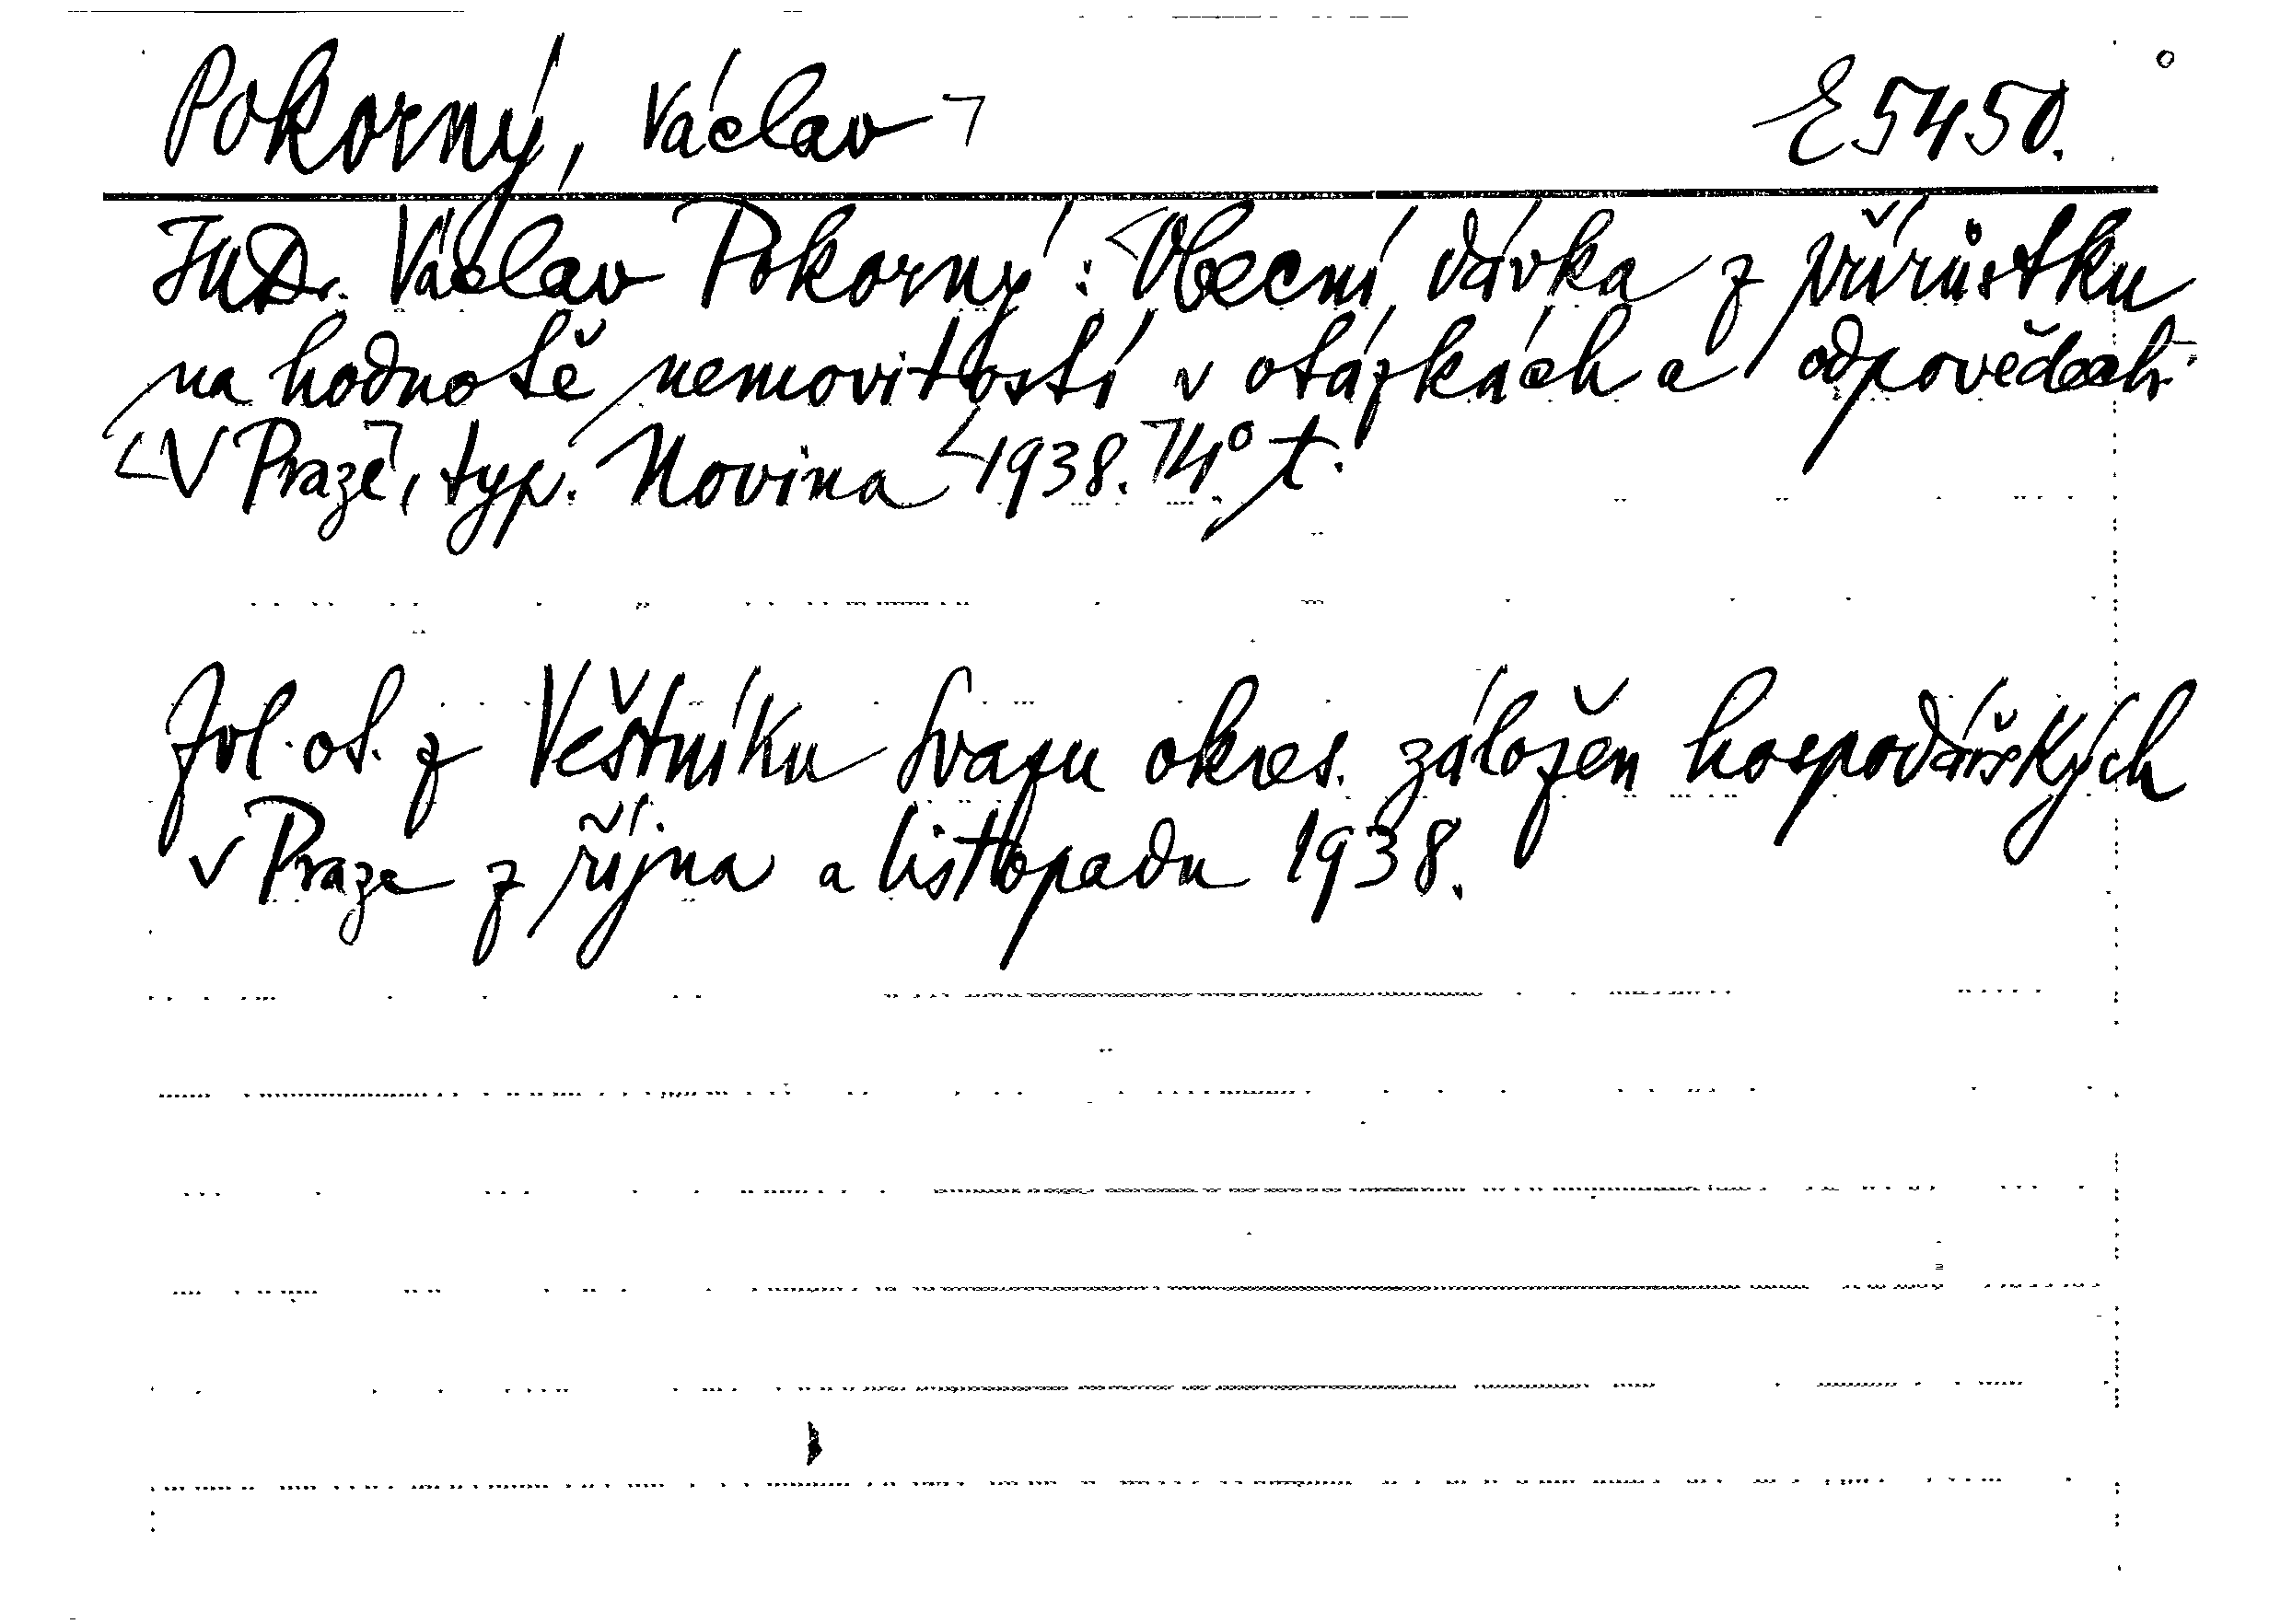 Pokorný, Václav ¬ E 5450.
JUDr. Václav Pokorný: <Obecní dávka z přírůstku
na hodnotě nemovitostí v otázkách a odpovědech.¬
<V Praze¬, typ. Novina <1938.¬ 4° t.
Zvl. ot. z Věštníku Svazu okres. záložen hospodářských
v Praze z října a listopadu 1938.